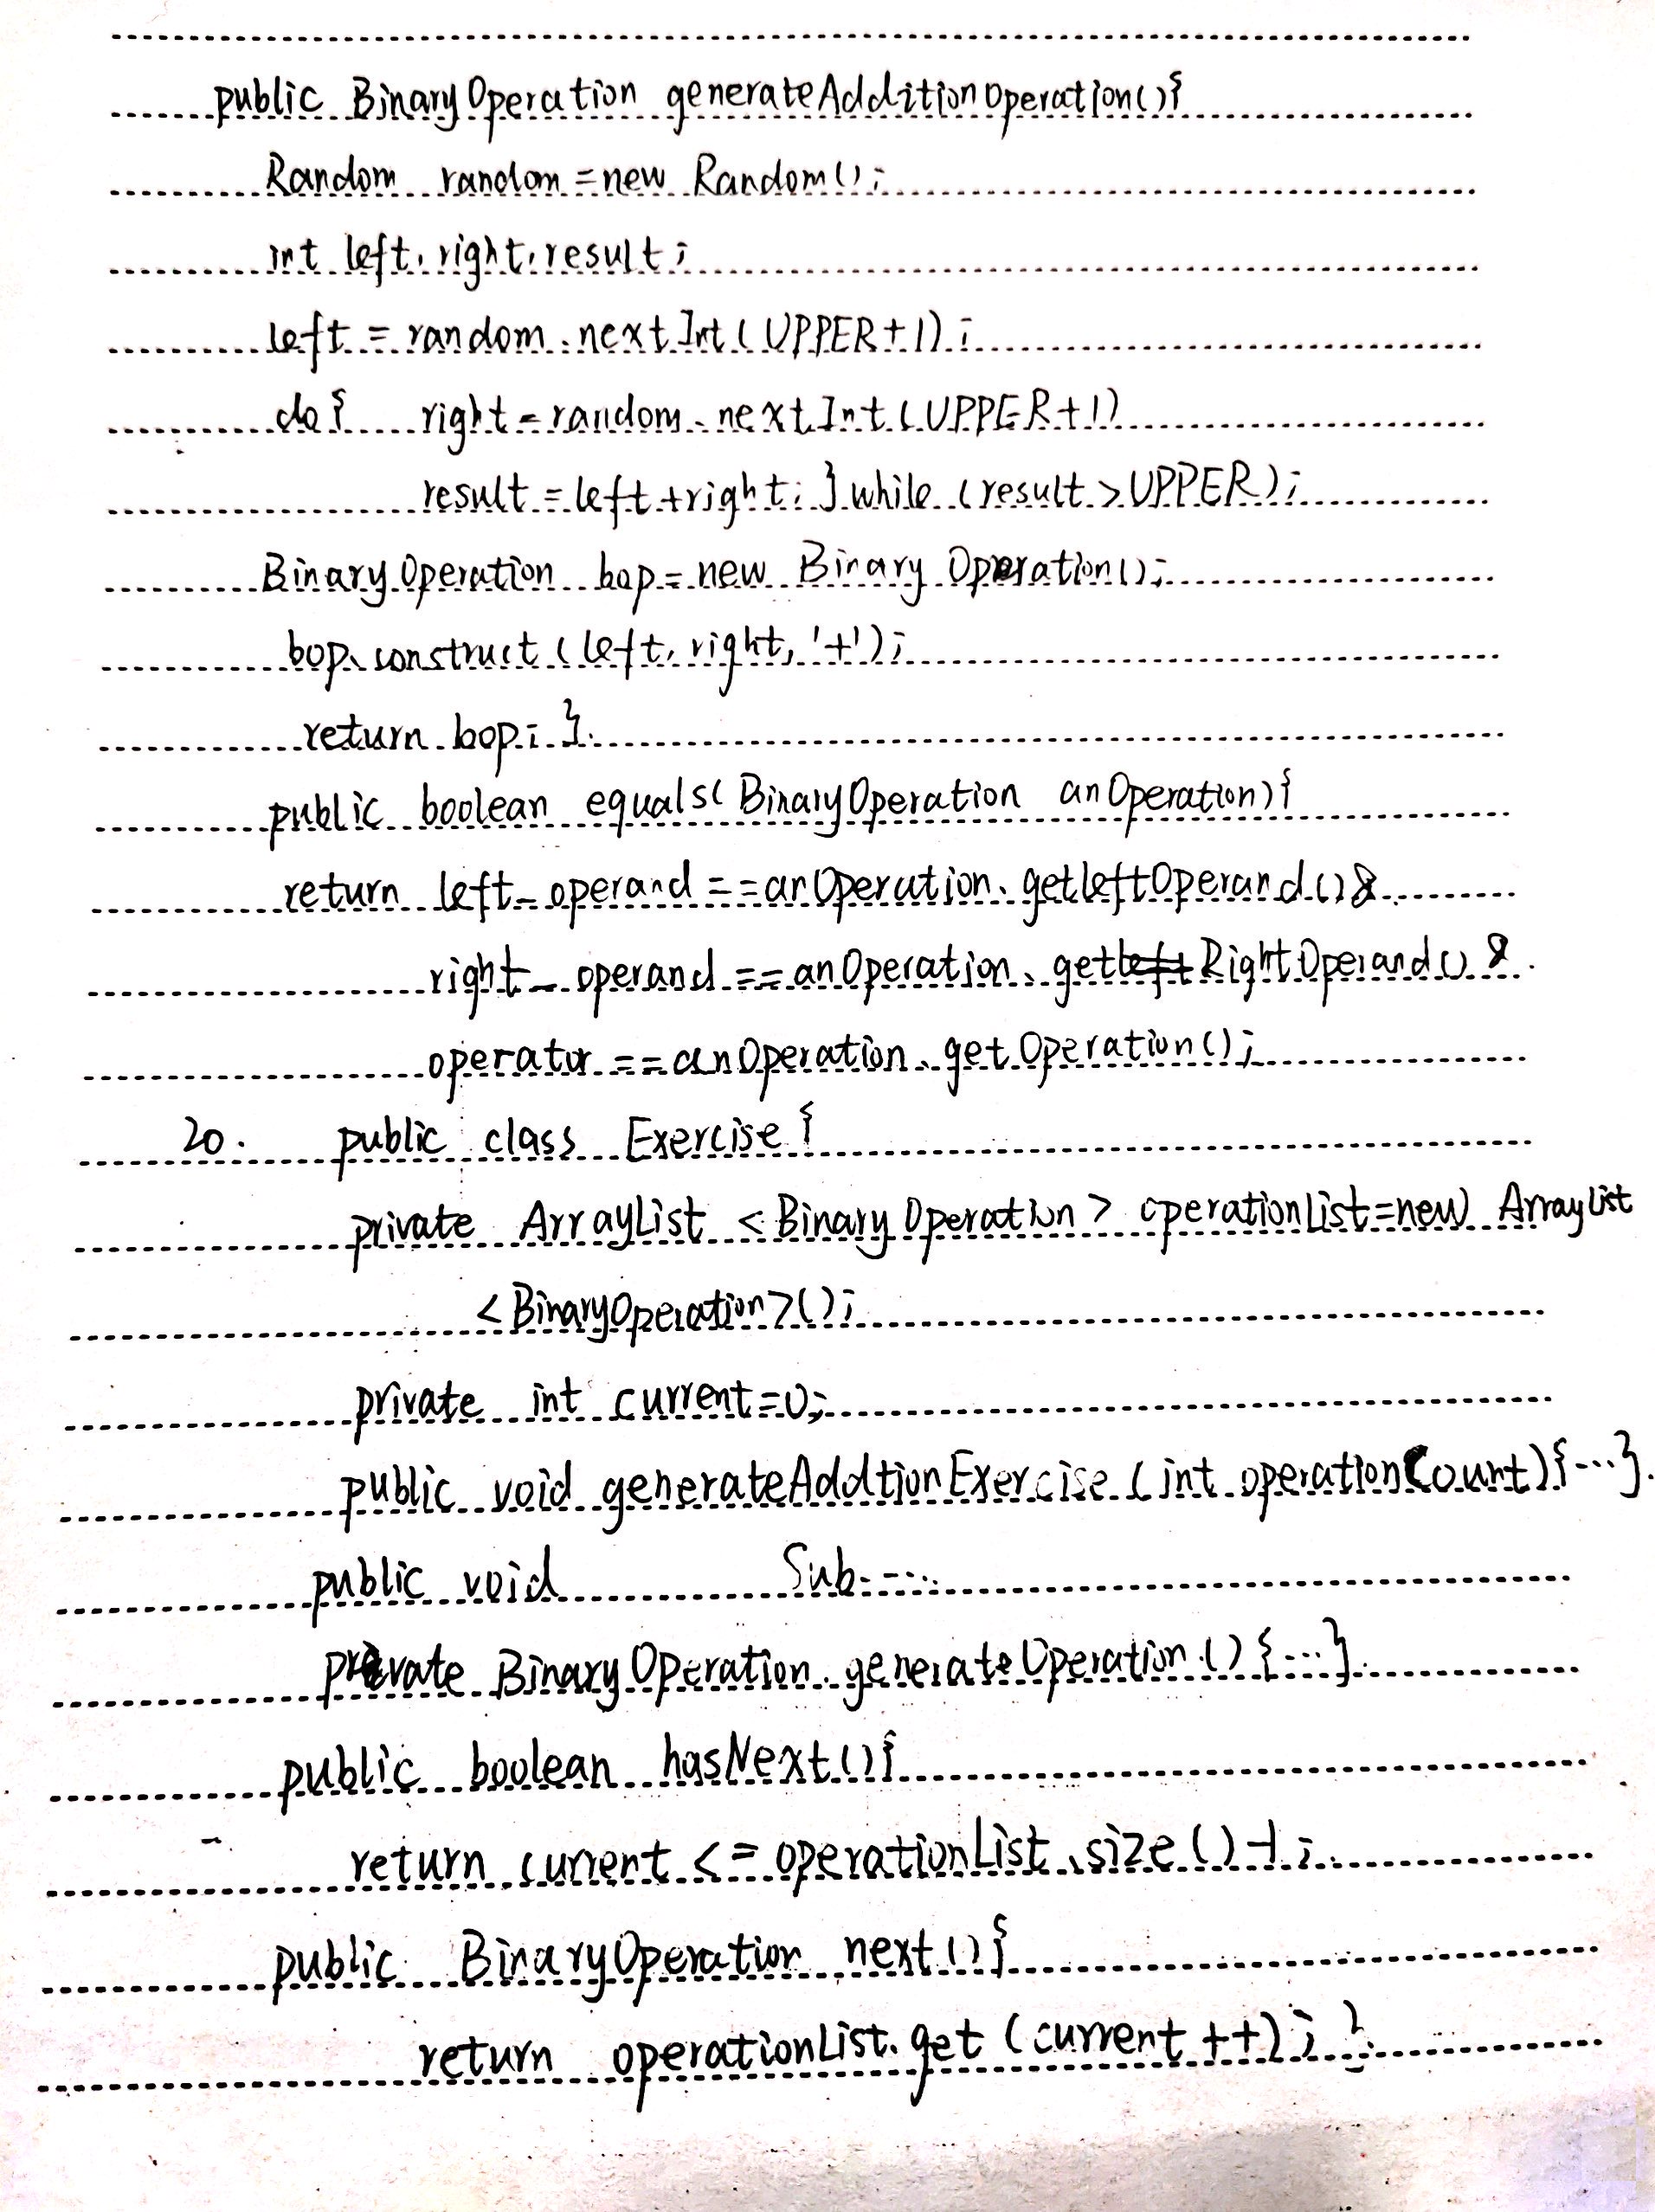 public BinaryOperation generateAdditionOperation(){
Random random=new Random();
int left,right,result;
left = random.nextInt(UPPER+1);
do{ right=random.nextInt(UPPER+1)
result=left+right;}while(result>UPPER);
BinaryOperation bop=new BinaryOperation();
bop.construct(left,right,'+');
return bop;}
public boolean equals(BinaryOperation anOperation){
return left_operand==anOperation.getLeftOperand()&
right_operand==anOperation.getRightOperand()&
operator==anOperation.getOperation();
20. public class Exercise{
private ArrayList <BinaryOperation> operationList=new ArrayList
<BinaryOperation>();
private int current=0;
public void generateAddtionExercise(int operationCount){...}
public void Sub.....
private BinaryOperation generateOperation(){...}
public boolean hasNext(){
return current<=operationList.size()-1;
public BinaryOperation next(){
return operationList.get(current++);}